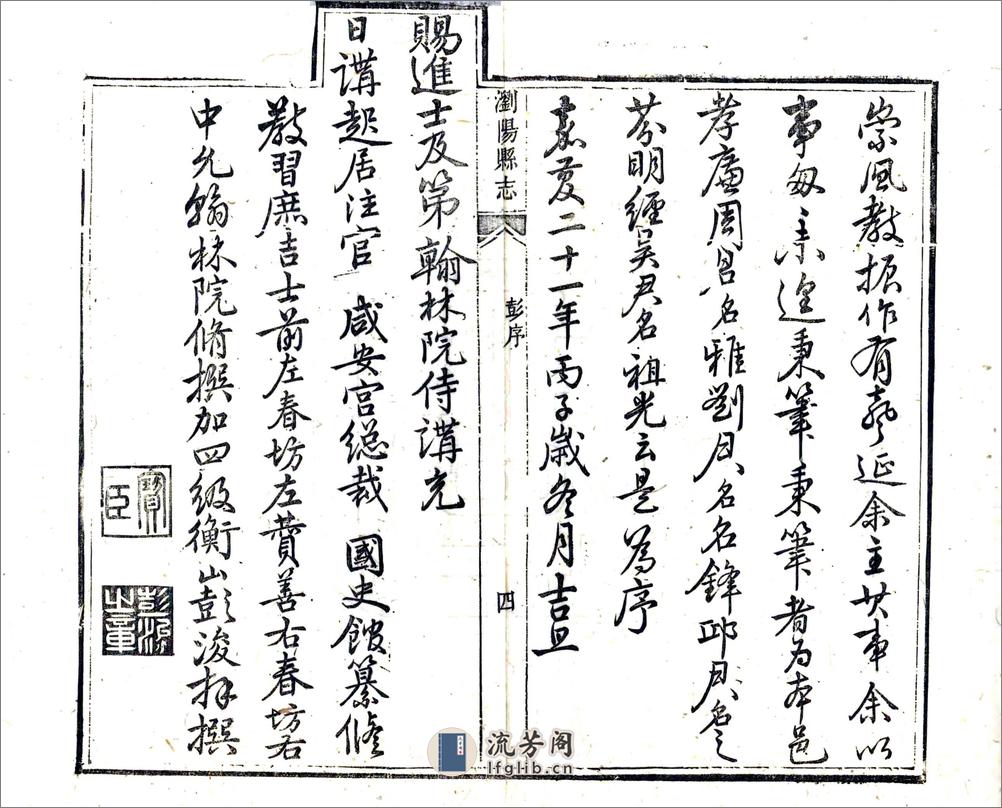 崇風教振作有聲延余主其事余以
事匆未遑秉筆秉筆者為本邑
孝廉周君名雅劉君名名鋒邱君名之
芬明經吳君名祖光云是為序
嘉慶二十一年丙子歲冬月吉旦
瀏陽縣志
彭序
四
賜進士及第翰林院侍講充
日講起居注官 咸安宮總裁 國史館纂修
教習庶吉士前左春坊左贊善右春坊右
中允翰林院脩撰加四級衡山彭浚拜撰
寶臣
彭浚之章
流芳阁
lfglib.cn